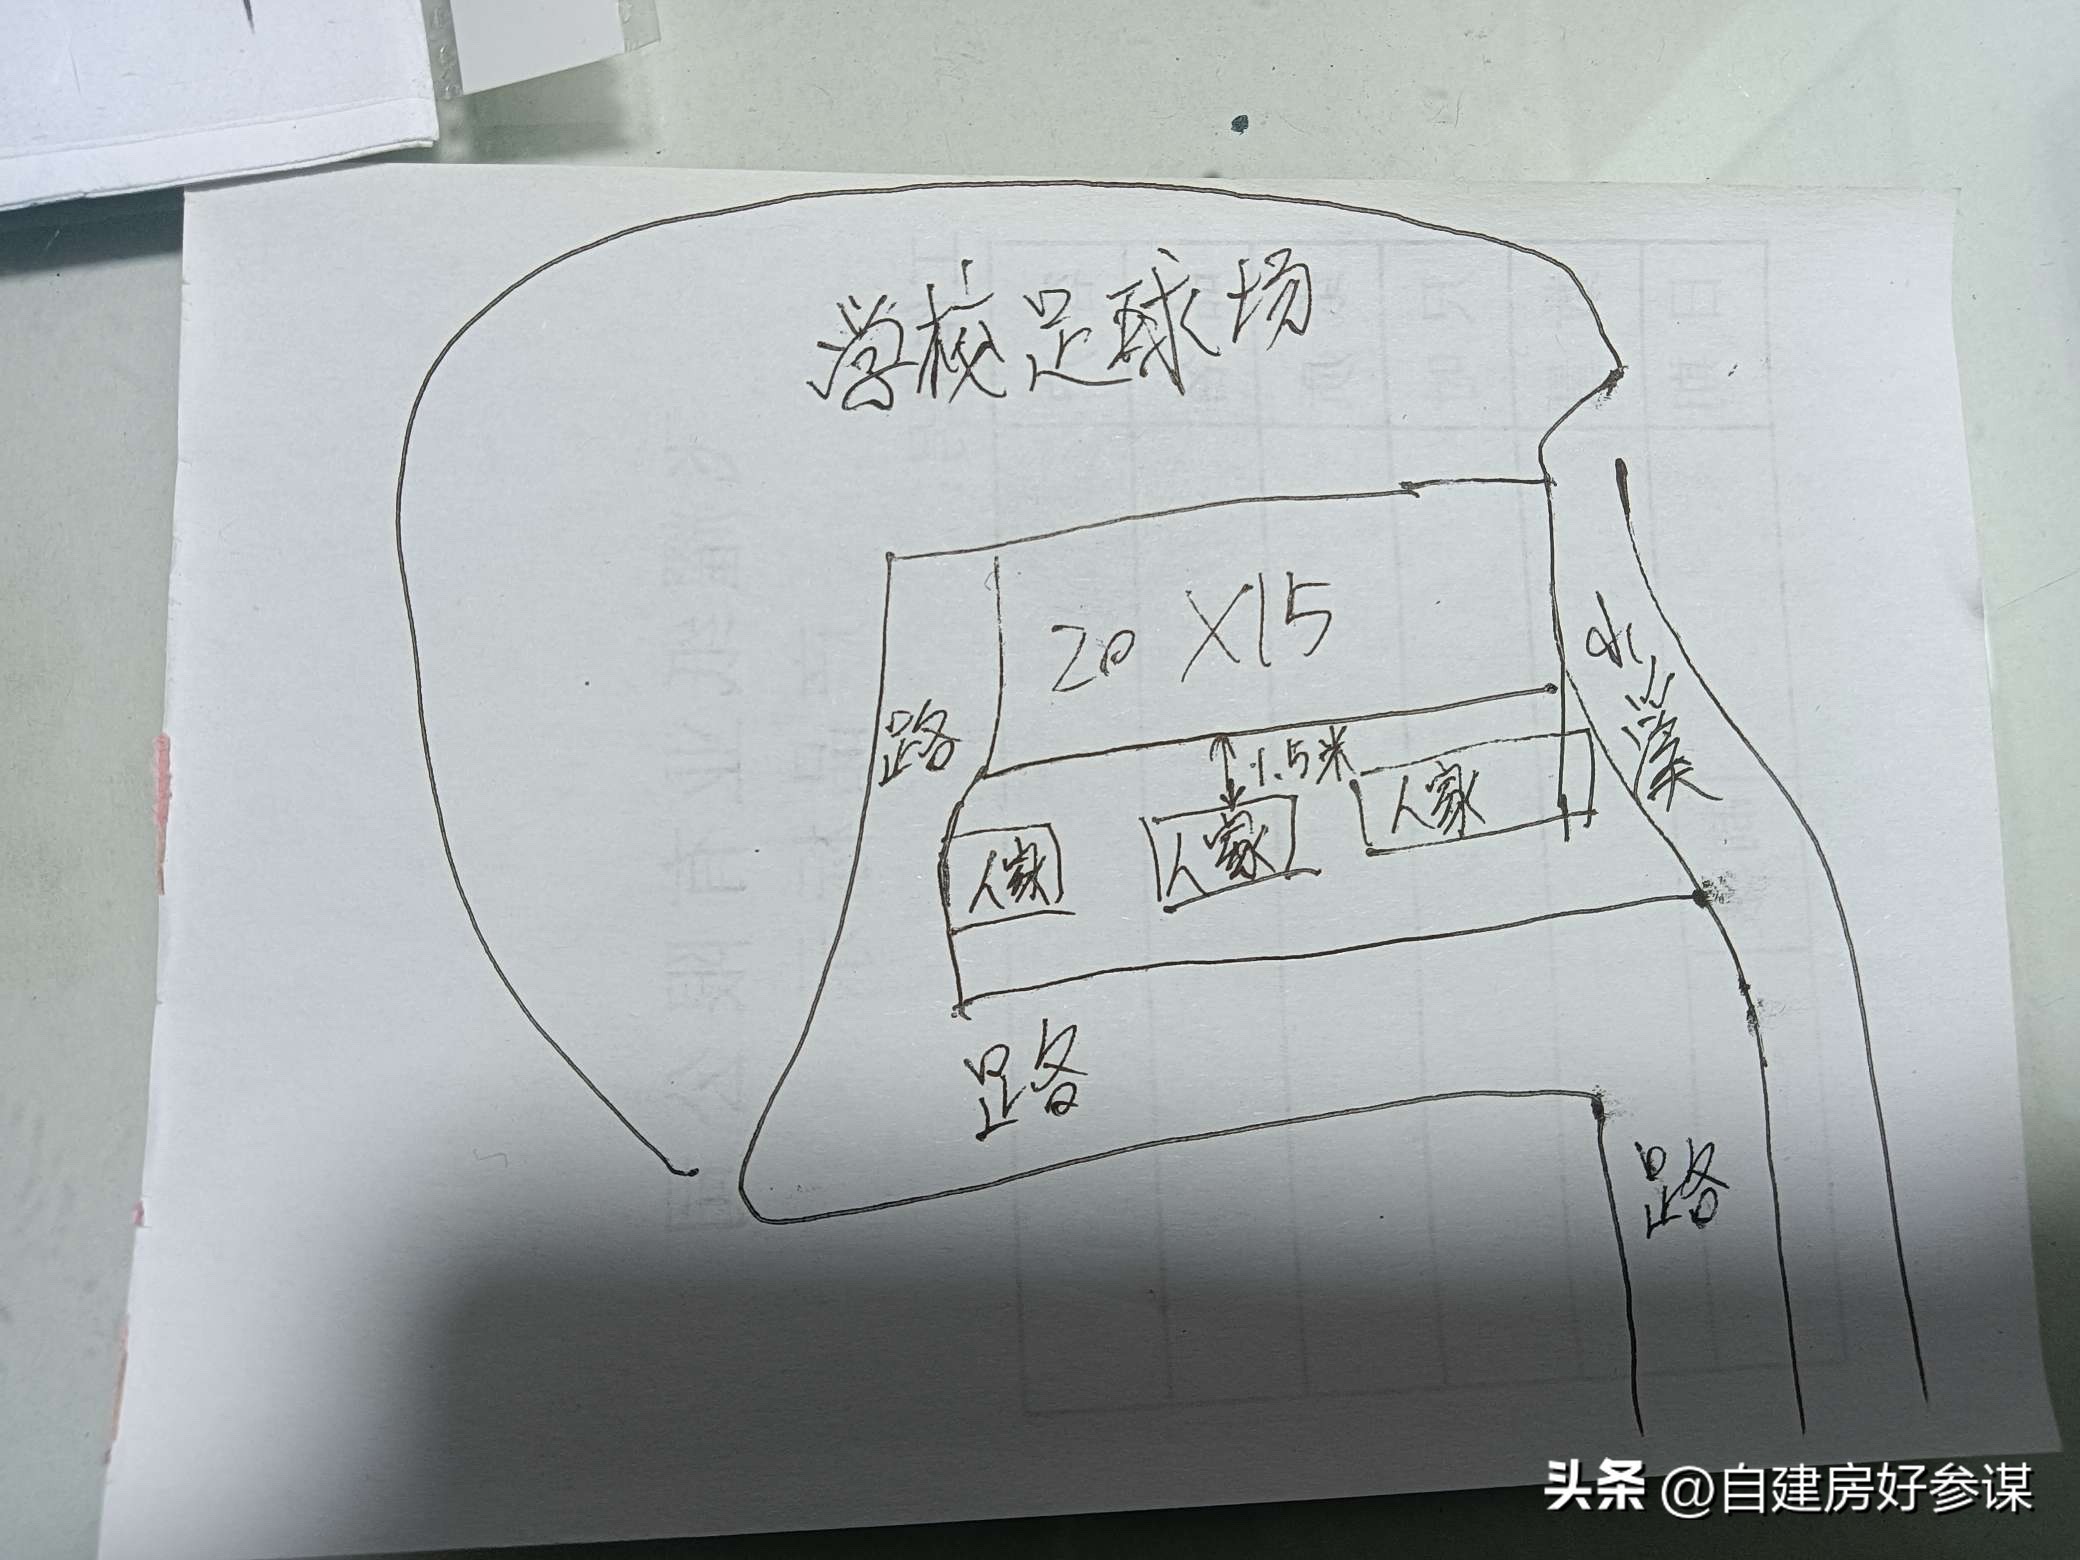 学校足球场
20×15
水溪
路
1.5米
人家
人家
人家
路
路
头条 @自建房好参谋